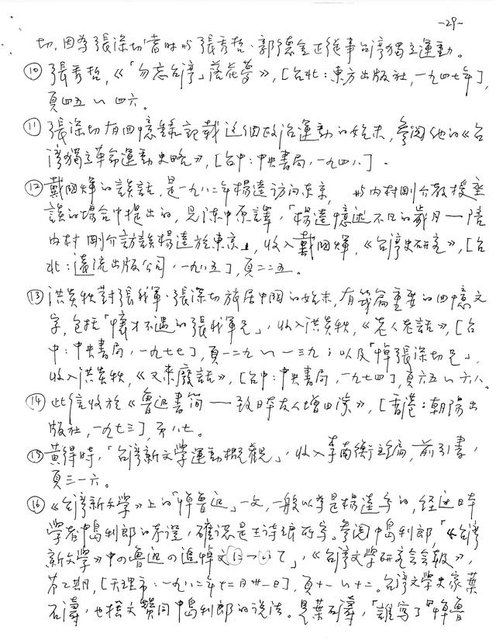 -29-
切,因為張深切當時與張秀哲、郭德金正從事台灣獨立運動。
⑩張秀哲,《「勿忘台灣」落花夢》,[台北:東方出版社,一九四七年],
頁四五~四六。
⑪張深切有回憶錄記載這個政治運動的始末,參閱他的《台
灣獨立革命運動史略》,[台中:中央書局,一九四八]。
⑫戴國煇的談話,是一九八二年楊逵訪問東京,與內村剛介教授座
談的場合中提出的,見陳中原譯,「楊逵憶述不凡的歲月——陪
內村剛介訪談楊逵於東京」,收入戴國煇,《台灣史研究》,[台
北:遠流出版公司,一九八五],頁二二五。
⑬洪炎秋對張我軍、張深切旅居中國的始末,有幾篇重要的回憶文
字,包括「懷才不遇的張我軍兄」,收入洪炎秋,《老人老話》,[台
中:中央書局,一九七七],頁一二九~一三九;以及「悼張深切兄」,
收入洪炎秋,《又來廢話》,[台中:中央書局,一九七四],頁六五~六八。
⑭此信收於《魯迅書簡——致日本友人增田涉》,[香港:朝陽出
版社,一九七三],頁八七。
⑮黃得時,「台灣新文學運動概觀」,收入李南衡主編,前引書,
頁三一六。
⑯《台灣新文學》上的「悼魯迅」一文,一般以為是楊逵寫的,經過日本
學者中島利郎的考證,確認是王詩琅所寫。參閱中島利郎,「《台灣
新文學》中の魯迅の追悼文について」,《台湾文學研究会会報》,
第二期,[天理市:一九八二年十二月卅一日],頁十~十二。台灣文學史家葉
石濤,也撰文贊同中島利郎的說法。見葉石濤,「誰寫了『悼魯